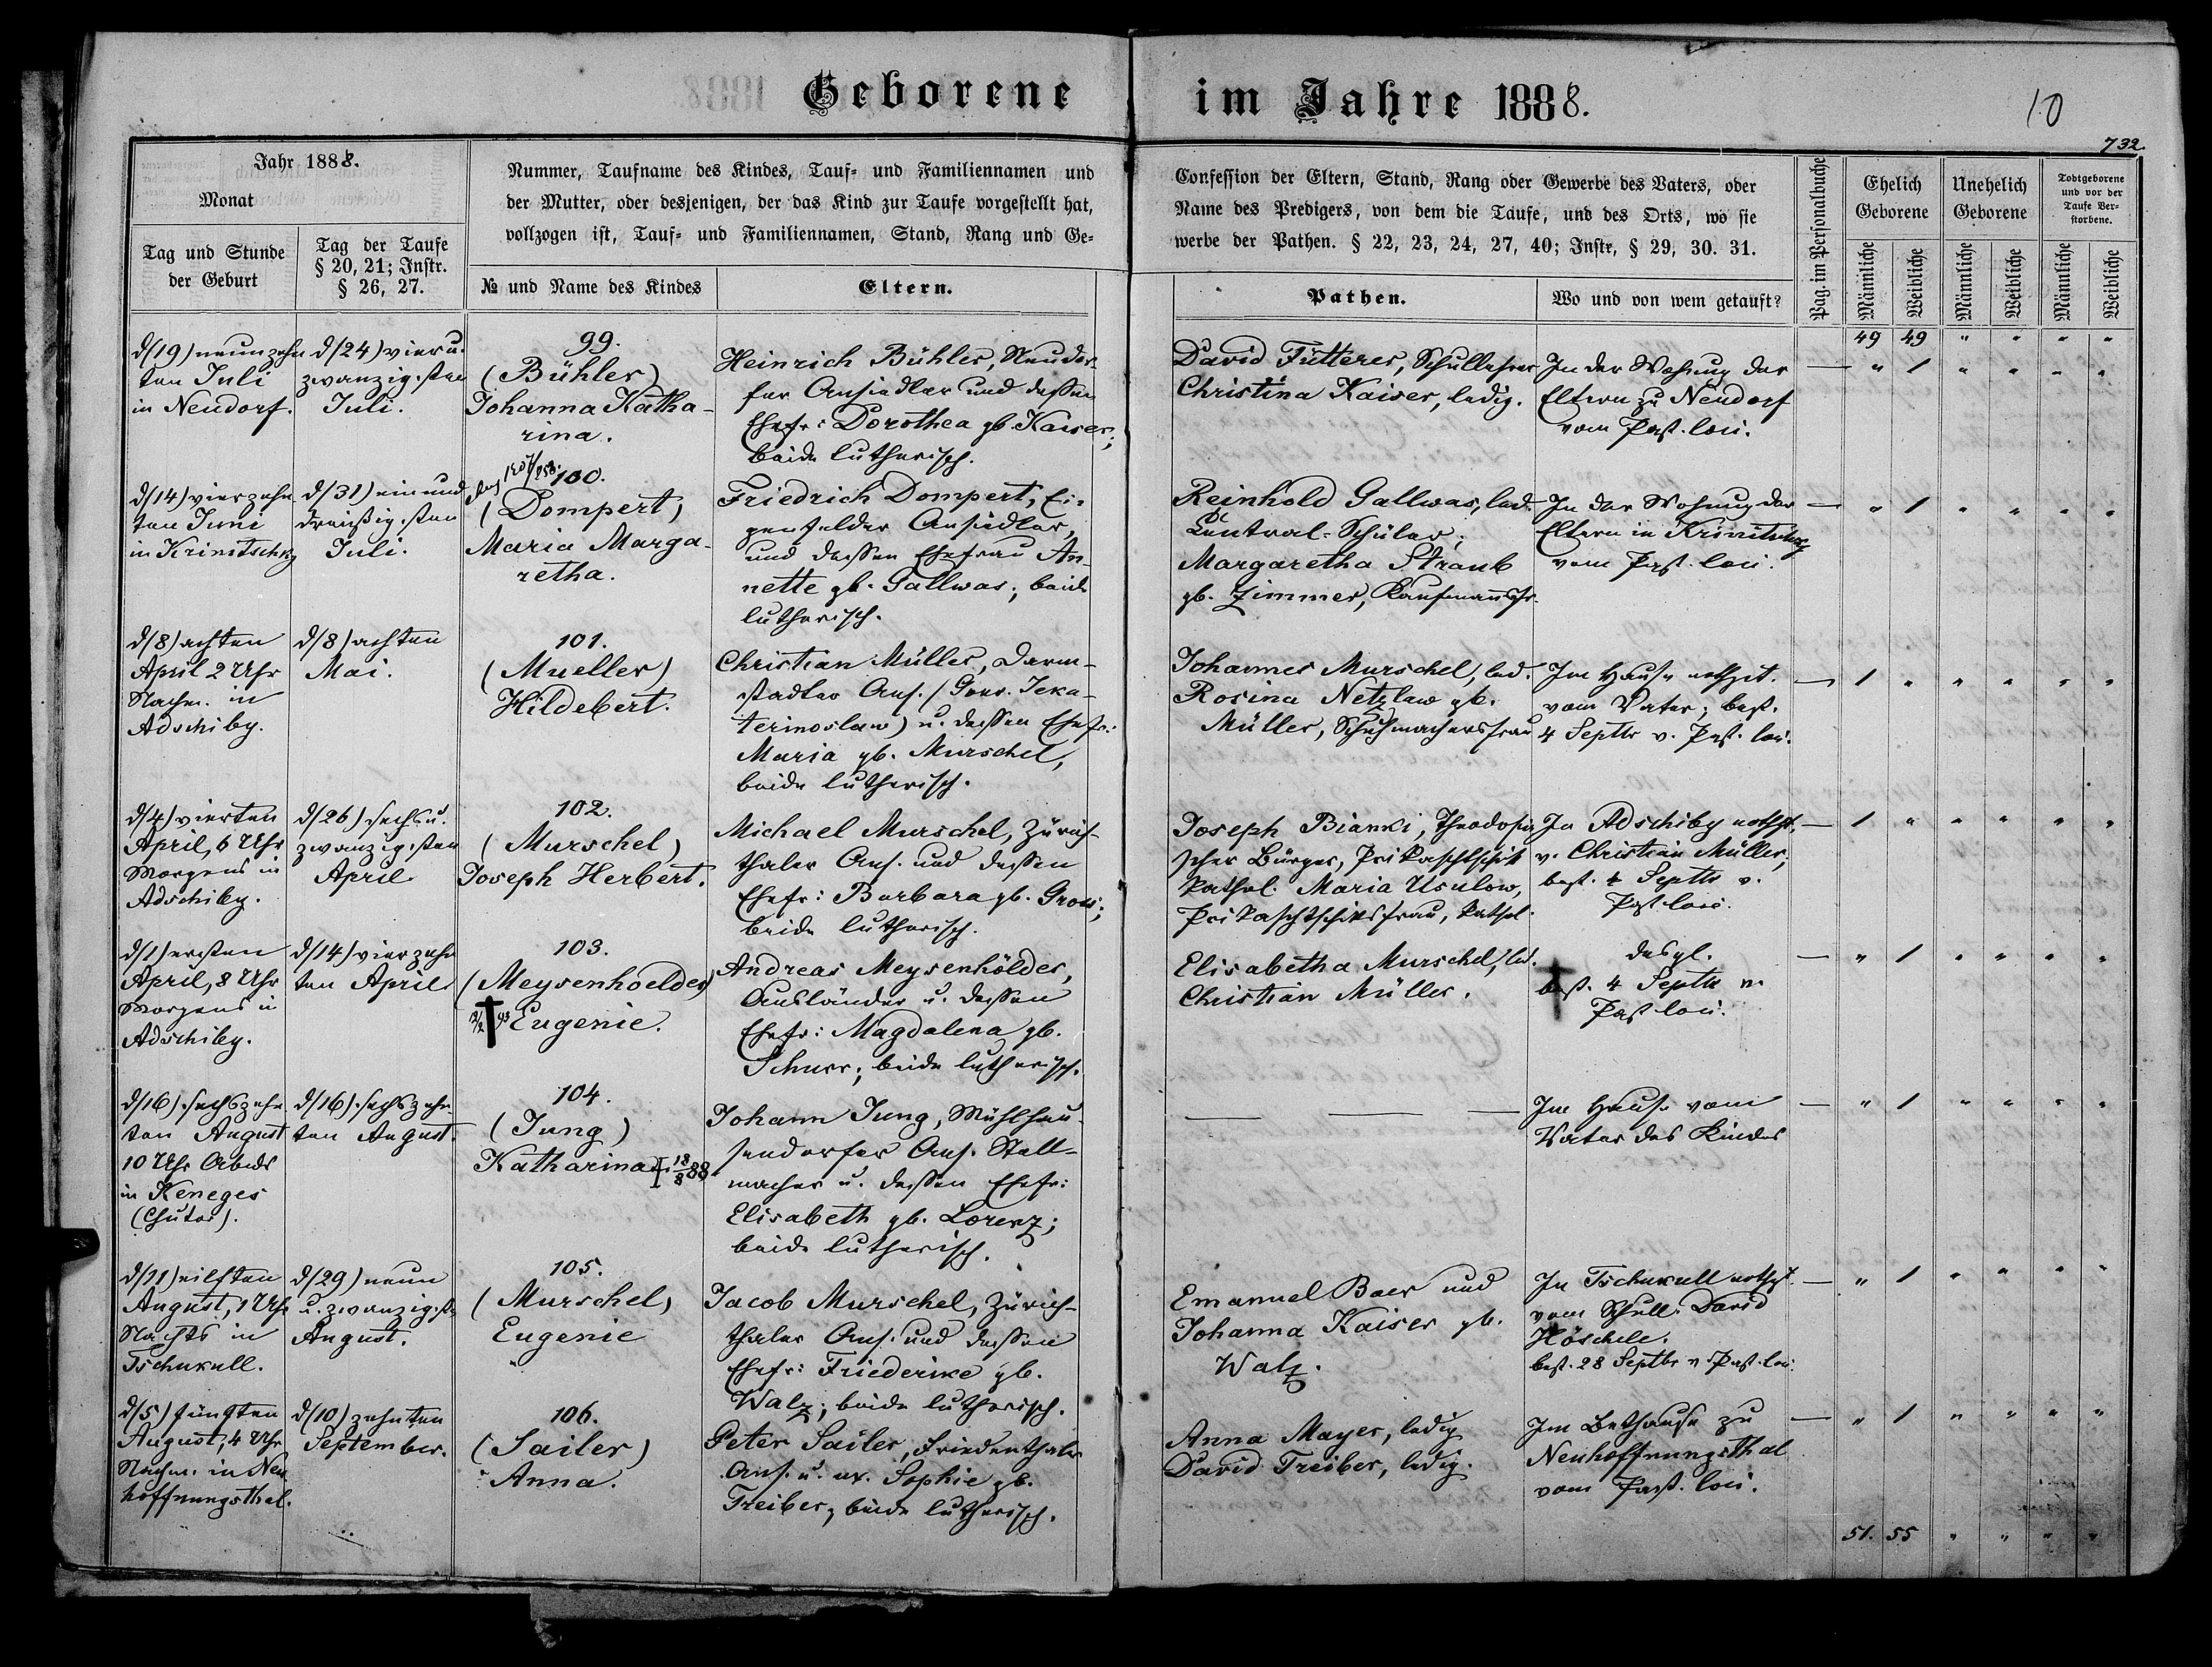 Geborene im Jahre 1888.
10
732.
Jahr 1888.
Monat
Tag und Stunde
der Geburt
Tag der Taufe
§ 20, 21; Instr.
§ 26, 27.
Nummer, Taufname des Kindes, Tauf- und Familiennamen und
der Mutter, oder desjenigen, der das Kind zur Taufe vorgestellt hat,
vollzogen ist, Tauf- und Familiennamen, Stand, Rang und Ge-
№ und Name des Kindes
Eltern.
Confession der Eltern, Stand, Rang oder Gewerbe des Vaters, oder
Name des Predigers, von dem die Taufe, und des Orts, wo sie
werbe der Pathen. § 22, 23, 24, 27, 40; Instr, § 29, 30. 31.
Pathen.
Wo und von wem getauft?
Pag. im Personalbuche
Ehelich
Geborene
Unehelich
Geborene
Todtgeborene
und vor der
Taufe Ver-
storbene.
Männliche
Weibliche
Männliche
Weibliche
Männliche
Weibliche
49 49 " " " "
d/(19) neunzehn
ten Juli
in Neudorf.
d/(24) vieru.
zwanzigsten
Juli.
99.
(Bühler)
Johanna Katha-
rina.
Heinrich Bühler, Neudor-
fer Ansiedler und dessen
Ehefr: Dorothea gb. Kaiser;
beide lutherisch.
David Fütterer, Schullehrer
Christina Kaiser, ledig.
In der Wohnung der
Eltern zu Neudorf
vom Past. loci.
— " 1 " " " "
d/(14) vierzehn
ten Juni
in Krinitschky
d/(31) einund
dreißigsten
Juli.
100.
(Dompert)
Maria Marga-
retha.
Friedrich Dompert, Ei-
genfelder Ansiedler,
und dessen Ehefrau An-
nette gb. Gallwas; beide
lutherisch.
Reinhold Gallwas, led.
Central-Schüler;
Margaretha Straub
gb. Zimmer, Kaufmannsfr.
In der Wohnung der
Eltern in Krinitschky
vom Past. loci.
— " 1 " " " "
d/(8) achten
April 2 Uhr
Nachm. in
Adschiby.
d/(8) achten
Mai.
101.
(Mueller)
Hildebert.
Christian Müller, Darm-
stadter Ans. (Gouv. Jeka-
terinoslaw) u. dessen Ehefr.:
Maria gb. Murschel,
beide lutherisch.
Johannes Murschel, led.
Rosina Netzlaw gb.
Müller, Schuhmachersfrau
Im Hause nothgt.
vom Vater; best.
4 Septbr v. Past. loci.
— 1 " " " " "
d/(4) vierten
April, 6 Uhr
Morgens in
Adschiby.
d/(26) sechsu.
zwanzigsten
April
102.
(Murschel)
Joseph Herbert.
Michael Murschel, Zürich-
thaler Ans. und dessen
Ehefr: Barbara gb. Gross;
beide lutherisch.
Joseph Bianki, Theodosia
scher Bürger, Prikaschtschik
kathol. Maria Usulow,
Prikaschtschiksfrau, kathol.
In Adschiby nothgt.
v. Christian Müller;
best. 4 Septbr v.
Past loci.
— 1 " " " " "
d/(1) ersten
April, 8 Uhr
Morgens in
Adschiby.
d/(14) vierzehn
ten April
103.
(Meysenhoelder)
Eugenie.
Andreas Meysenhölder,
Ausländer u. dessen
Ehefr: Magdalena gb.
Schurr; beide lutherisch.
Elisabetha Murschel, led.
Christian Müller.
desgl.
best. 4 Septbr v.
Past loci.
— " 1 " " " "
d/(16) sechszehn
ten August
10 Uhr Abends
in Keneges
(Chutor).
d/(16) sechszehn-
ten August.
104.
(Jung)
Katharina 18/8 88
Johann Jung, Mühlhau-
sendorfer Ans. Stell-
macher u. dessen Ehefr:
Elisabeth gb. Lorenz;
beide lutherisch.
— — —
Im Hause vom
Vater des Kindes
— " 1 " " " "
d/(11) eilften
August, 1 Uhr
Nachts in
Tschukull.
d/(29) neun
u. zwanzigste
August.
105.
(Murschel)
Eugenie
Jacob Murschel, Zürich-
thaler Ans. und dessen
Ehefr: Friederike gb.
Walz; beide lutherisch.
Emanuel Baer und
Johanna Kaiser gb.
Walz.
In Tschukull nothgt
vom Schull. David
Höschele.
best. 28 Septbr v Past. loci.
— " 1 " " " "
d/(5) fünften
August, 4 Uhr
Nachm. in Neu
hoffnungsthal.
d/(10) zehnten
September.
106.
(Sailer)
Anna.
Peter Sailer, Friedenthaler
Ans. u. ux. Sophie gb.
Treiber; beide lutherisch.
Anna Mayer, ledig
David Treiber, ledig.
Im Bethause zu
Neuhoffnungsthal
vom Past. loci.
— " 1 " " " "
51. 55 " " " "